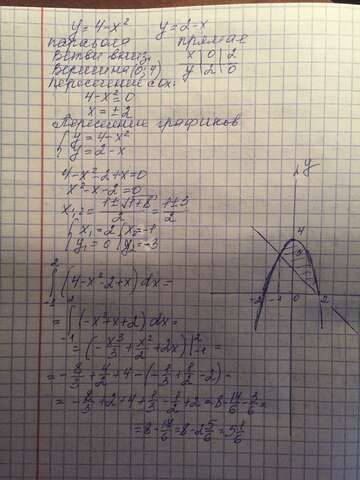 y = 4-x² y = 2-x
парабола прямая
Ветви вниз x | 0 | 2
Вершина (0; 4) y | 2 | 0
Пересечение с ох:
4-x²=0
x = ±2
Пересечение графиков
{ y = 4-x²
y = 2-x
4-x²-2+x=0
x²-x-2=0
x₁,₂ = (1±√1+8)/2 = (1±3)/2
{ x₁ = 2 { x₂ = -1
y₁ = 0 y₂ = -3
∫(4-x²-2+x)dx =
= ∫(-x²+x+2)dx =
= (-x³/3 + x²/2 + 2x)|²₋₁ =
= -8/3 + 4/2 + 4 - (-1/3 + 1/2 - 2) =
= -8/3 + 2 + 4 + 1/3 - 1/2 + 2 = 8 - 14/6 - 3/6 =
= 8 - 2 5/6 = 5 1/6
y
4
-2 -1 0 2